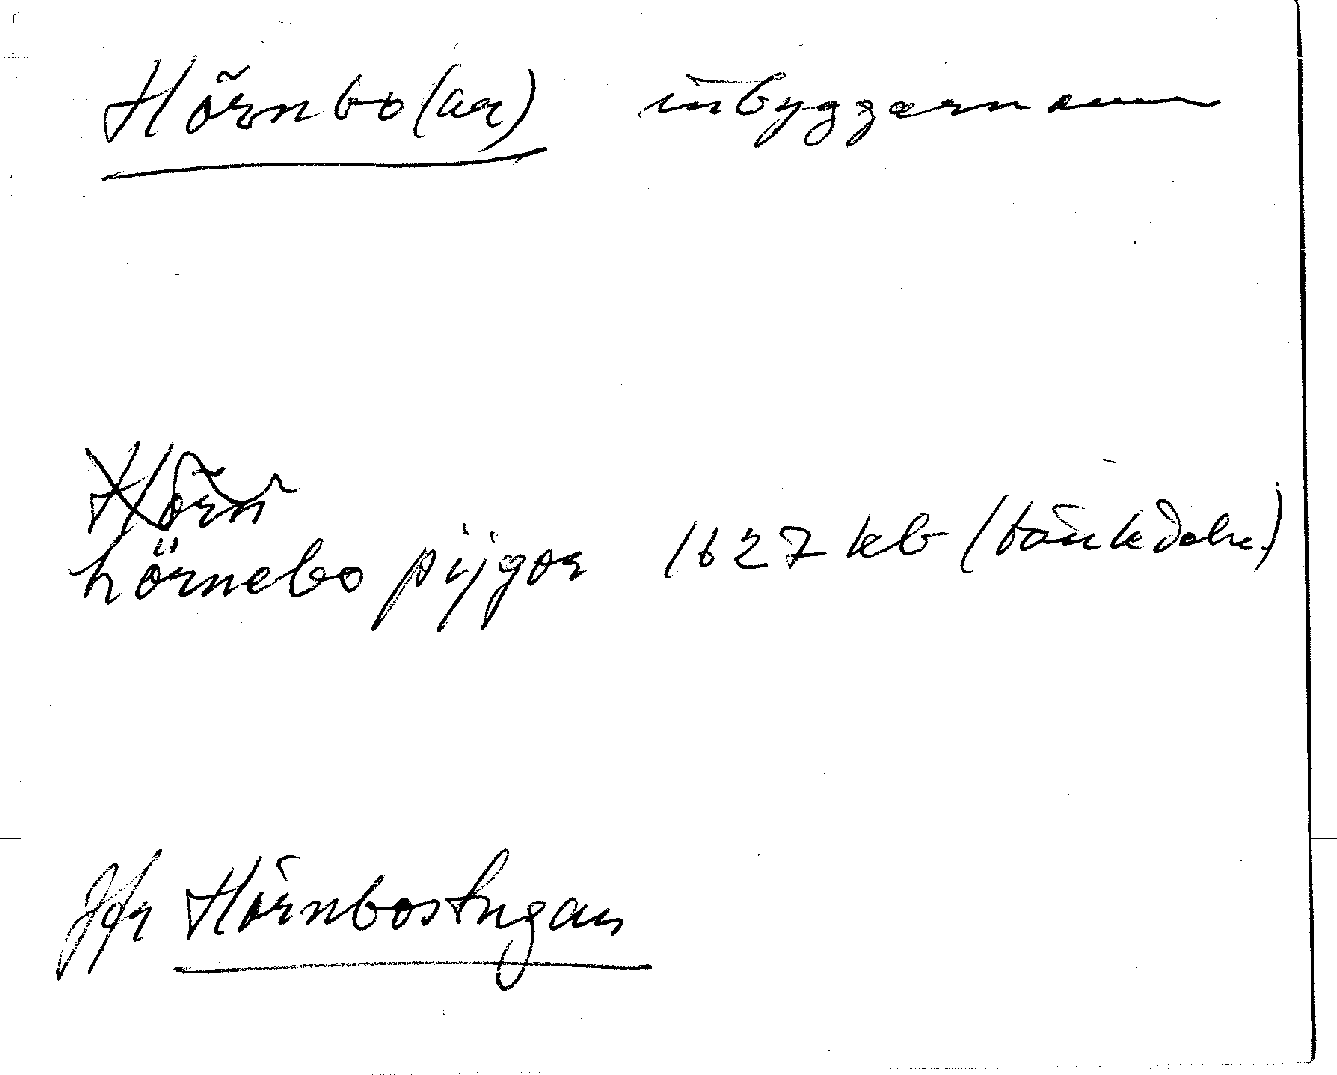 Hörnbo(ar) inbyggernamn
Hörn
hörnebo pijgor 1627 kb (bänkdeln.)
Jfr Hörnbostugan